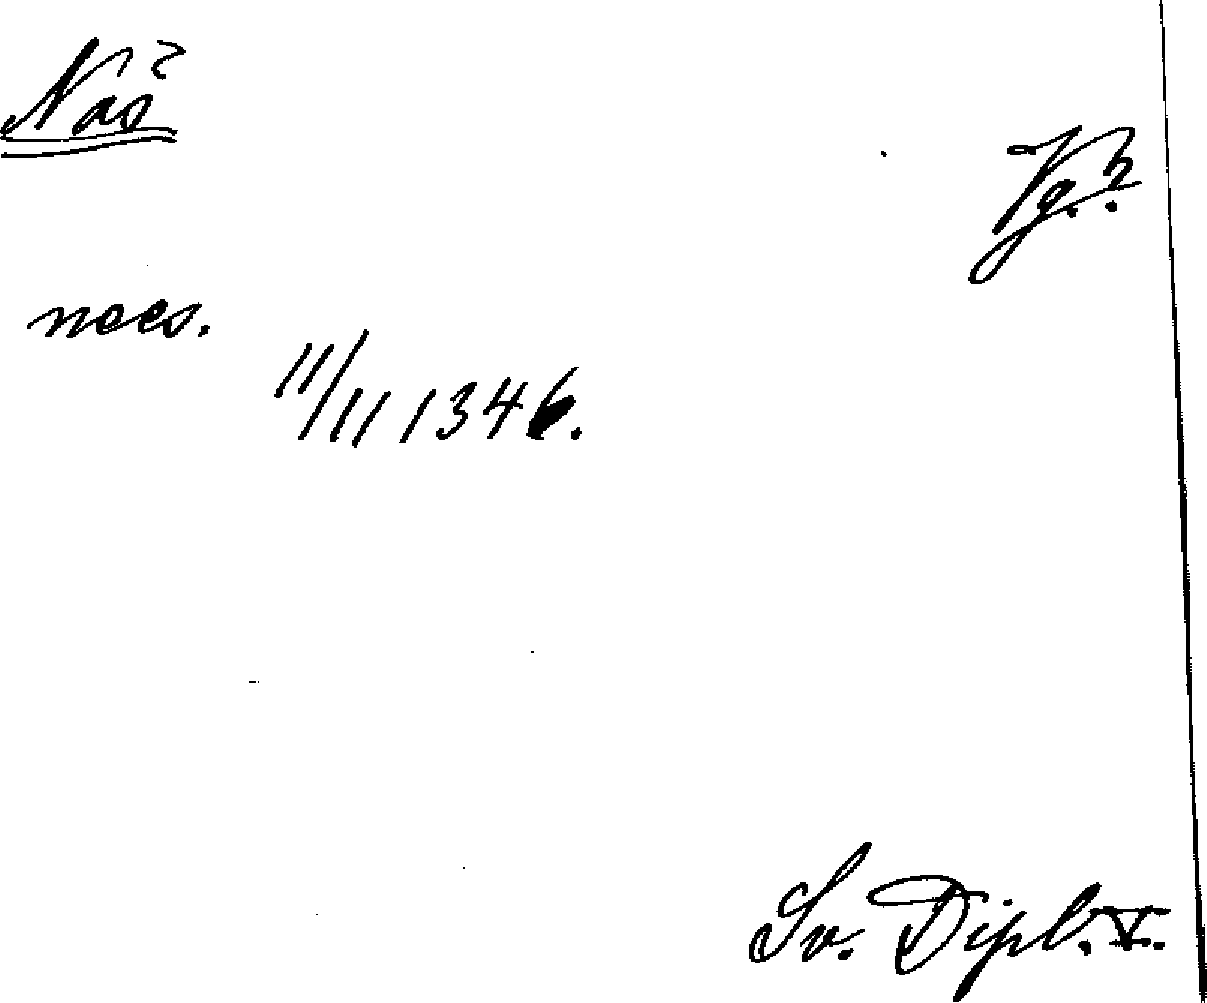 Näs
Vg.?
nees.
11/11 1346.
Sv. Dipl. V.